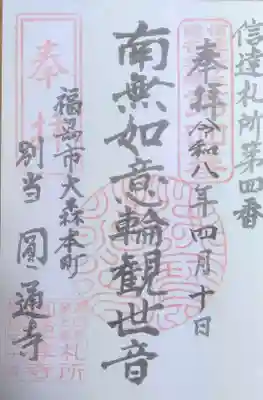 信達札所第四番
奉拝 令和八年四月十日
南無如意輪観世音
福島市大森本町
別当 圓通寺
奉拝
札所